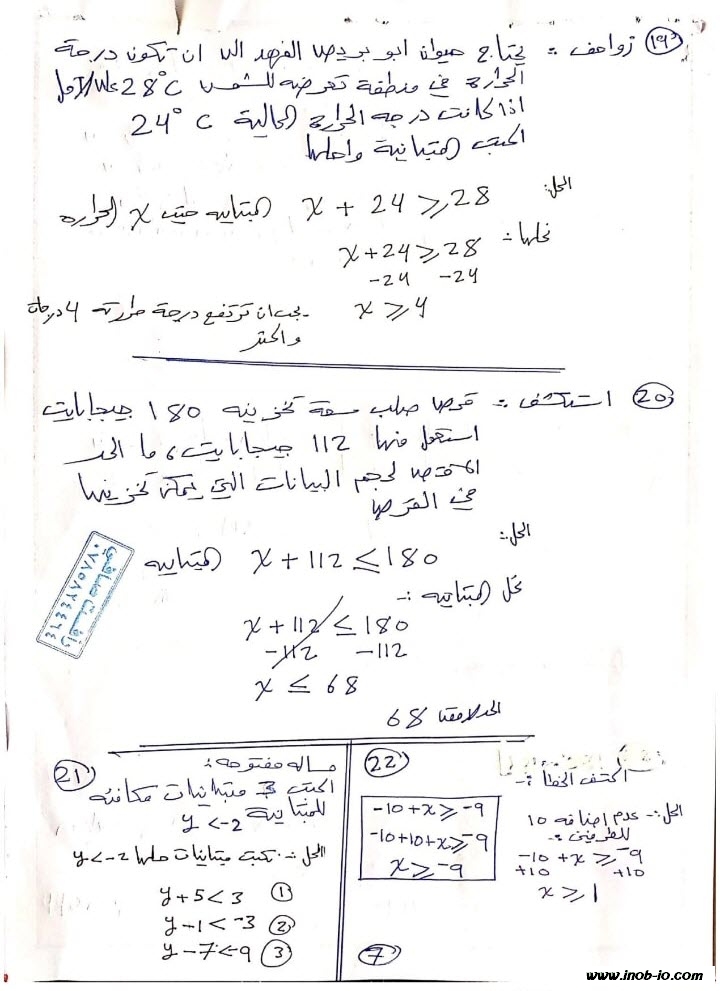 (19) زواحف : يحتاج حيوان ابو بريص الفهد الى ان تكون درجة
الحرارة في منطقة تعرضه للشمس 28°C على الأقل
اذا كانت درجة الحرارة الحالية 24°C
اكتب المتباينة واحلها
الحل:
x + 24 ≥ 28 المتباينة حيث x الحرارة
نحلها :-
x + 24 ≥ 28
-24 -24
x ≥ 4 يجب ان ترتفع درجة حرارته 4 درجات
(20) استكشف : قرص صلب سعة تخزينه 180 جيجابايت
استعمل منها 112 جيجابايت، ما الحد
الاقصى لحجم البيانات التي يمكن تخزينها
في القرص
الحل:-
x + 112 ≤ 180 المتباينة
نحل المتباينة :-
x + 112 ≤ 180
-112 -112
x ≤ 68
68
(21) مسالة مفتوحة :
اكتب 3 متباينات مكافئة
للمتباينة y < -2
الحل :- نكتب متباينات حلها y < -2
y + 5 < 3 (1)
y - 1 < -3 (2)
y - 7 < -9 (3)
(22)
اكتشف الخطأ :-
-10 + x ≥ -9
-10 + 10 + x ≥ -9
x ≥ -9
الحل :- عدم اضافة 10
للطرفين :-
-10 + x ≥ -9
+10 +10
x ≥ 1
(7)
www.inob-io.com